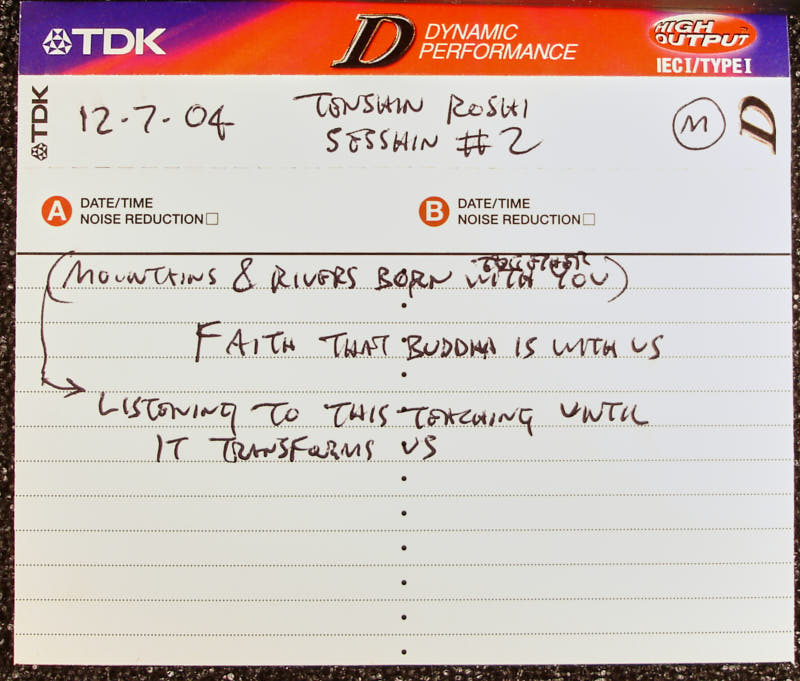 TDK D DYNAMIC PERFORMANCE HIGH OUTPUT IEC I/TYPE I
TDK 12-7-04 TENSHIN ROSHI M D
SESSHIN #2
A DATE/TIME B DATE/TIME
NOISE REDUCTION NOISE REDUCTION
TOGETHER
(MOUNTAINS & RIVERS BORN WITH YOU)
FAITH THAT BUDDHA IS WITH US
LISTENING TO THIS TEACHING UNTIL
IT TRANSFORMS US